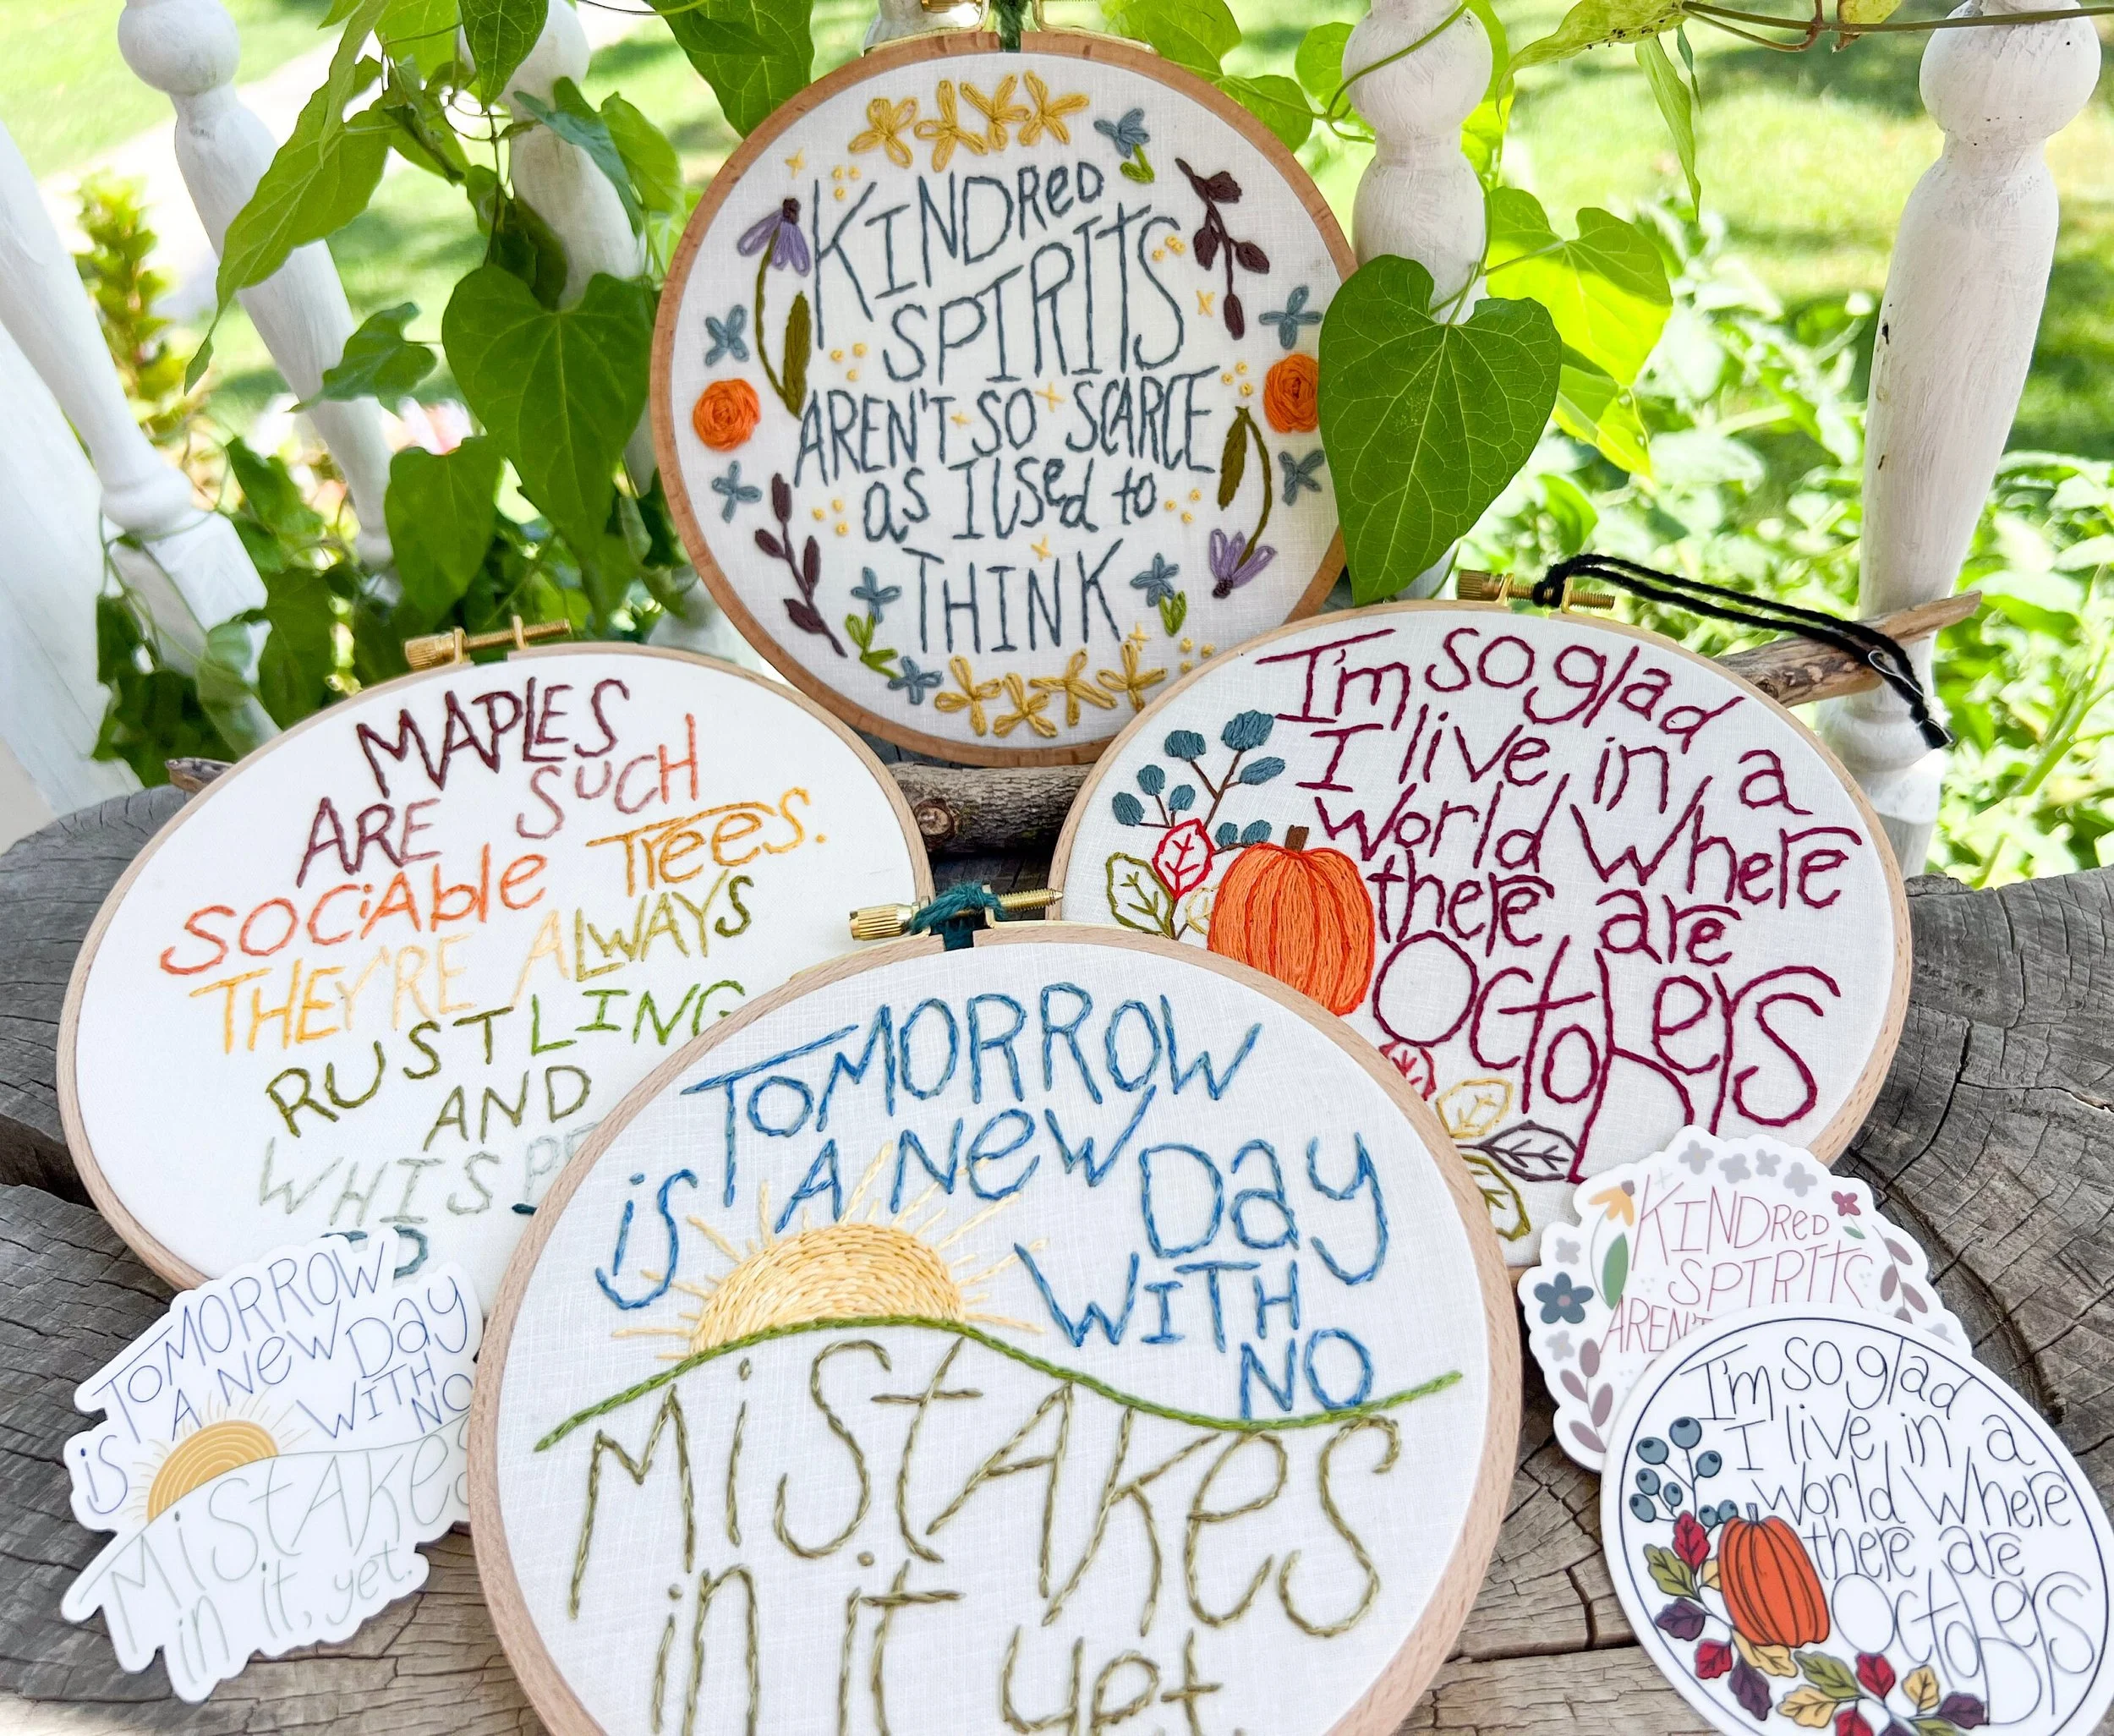 KINDRed
SPIRITS
AREN'T SO SCARCE
as I USed to
THINK
MAPLES
ARE SUCH
SOCiAble TRees.
THEY'RE ALWAYS
RUSTLING
AND
WHISPE
I'm so glad
I live in a
world where
there are
Octobers
TOMORROW
is A New Day
WITH
NO
MiStAKes
in it yet.
TOMORROW
is A New Day
WITH
NO
MiStAKes
in it, yet.
KINDRed
SPIRITS
AREN'T
I'm so glad
I live in a
world where
there are
Octobers